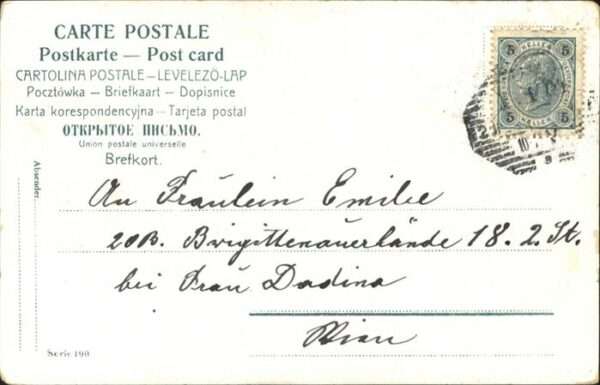 CARTE POSTALE
Postkarte — Post card
CARTOLINA POSTALE — LEVELEZŐ-LAP
Pocztówka — Briefkaart — Dopisnice
Karta korespondencyjna — Tarjeta postal
ОТКРЫТОЕ ПИСЬМО.
Union postale universelle
Brefkort.
5 HELLER 5
5 HELLER 5
10
Absender
An Fräulein Emilie
20B. Brigittenauerlände 18. 2. St.
bei Frau Dadina
Wien
Serie 190